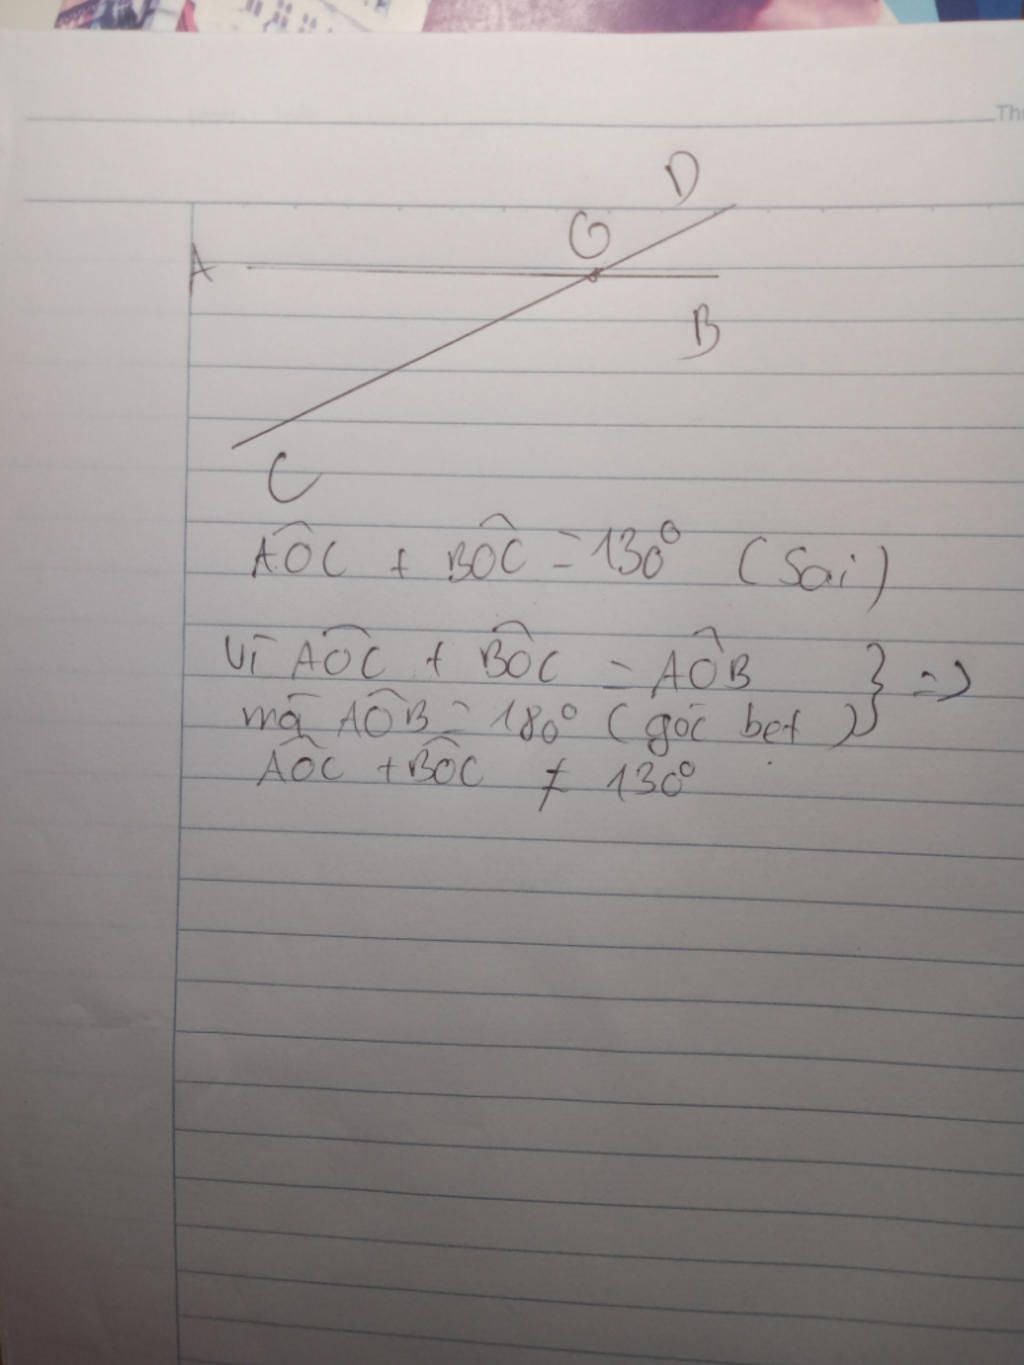 Th
D
O
A
B
C
AÔC + BÔC = 130° (Sai)
Vì AÔC + BÔC = AÔB } =>
mà AÔB = 180° (góc bẹt)
AÔC + BÔC ≠ 130°